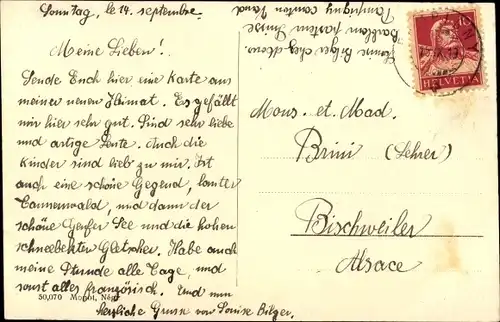 Sonntag, le 14. septembre.
Meine Lieben!
Sende Euch hier eine Karte aus
meiner neuen Heimat. Es gefällt
mir hier sehr gut. Sind sehr liebe
und artige Leute. Auch die
Kinder sind lieb zu mir. Ist
auch eine schöne Gegend, lauter
Tannenwald, und dann der
schöne Genfer See und die hohen
schneebedekten Gletscher. Habe auch
meine Stunde alle Tage, und
sonst alles französisch. Und nun
herzliche Grüsse von Louise Bilger.
50,070 Mopot, Nég.
Louise Bilger chez Mons.
Barblan pasteur Suisse
canton Vaud
HELVETIA
10
Mons. et. Mad.
Brini (Lehrer)
Bischweiler
Alsace